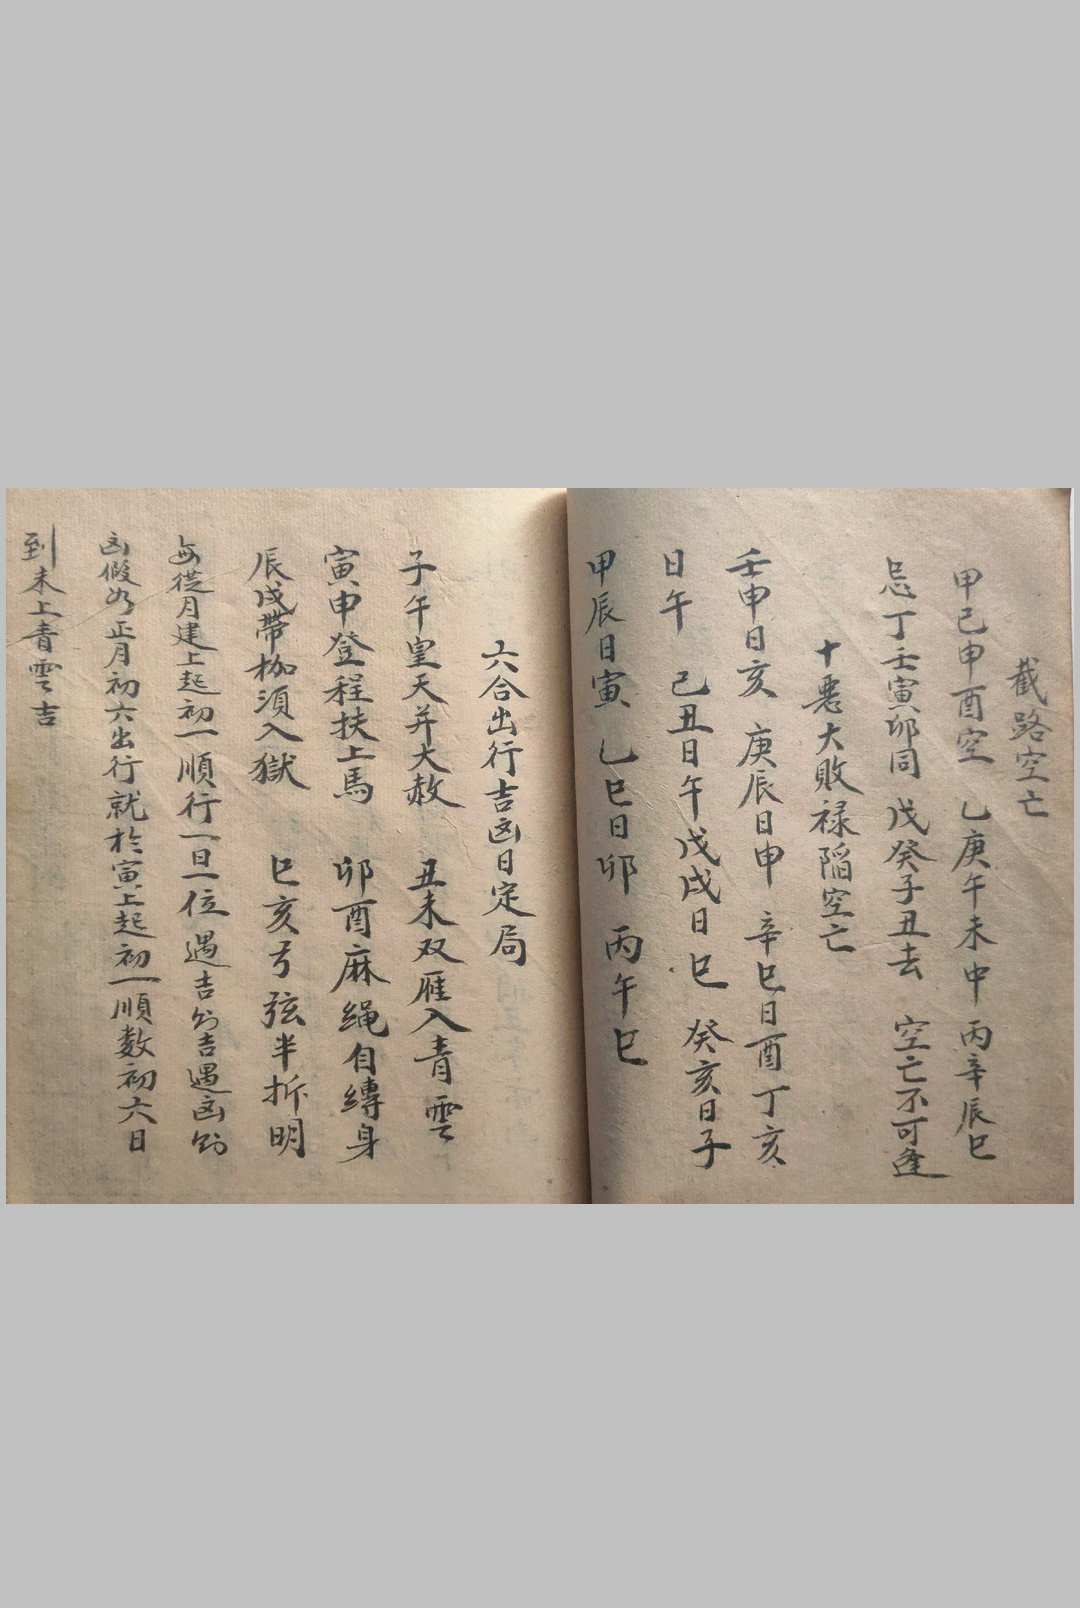 截路空亡
甲己申酉空 乙庚午未中 丙辛辰巳
忌丁壬寅卯同 戊癸子丑去 空亡不可逢
十悪大敗禄陷空亡
壬申日亥 庚辰日申 辛巳日酉 丁亥
日午 己丑日午 戊戌日巳 癸亥日子
甲辰日寅 乙巳日卯 丙午巳
六合出行吉凶日定局
子午皇天并大赦 丑未双雁入青雲
寅申登程扶上馬 卯酉麻繩自縛身
辰戌帶枷須入獄 巳亥弓弦半折明
每從月建上起初一順行一日一位遇吉則吉遇凶則
凶假如正月初六出行就於寅上起初一順數初六日
到未上青雲吉